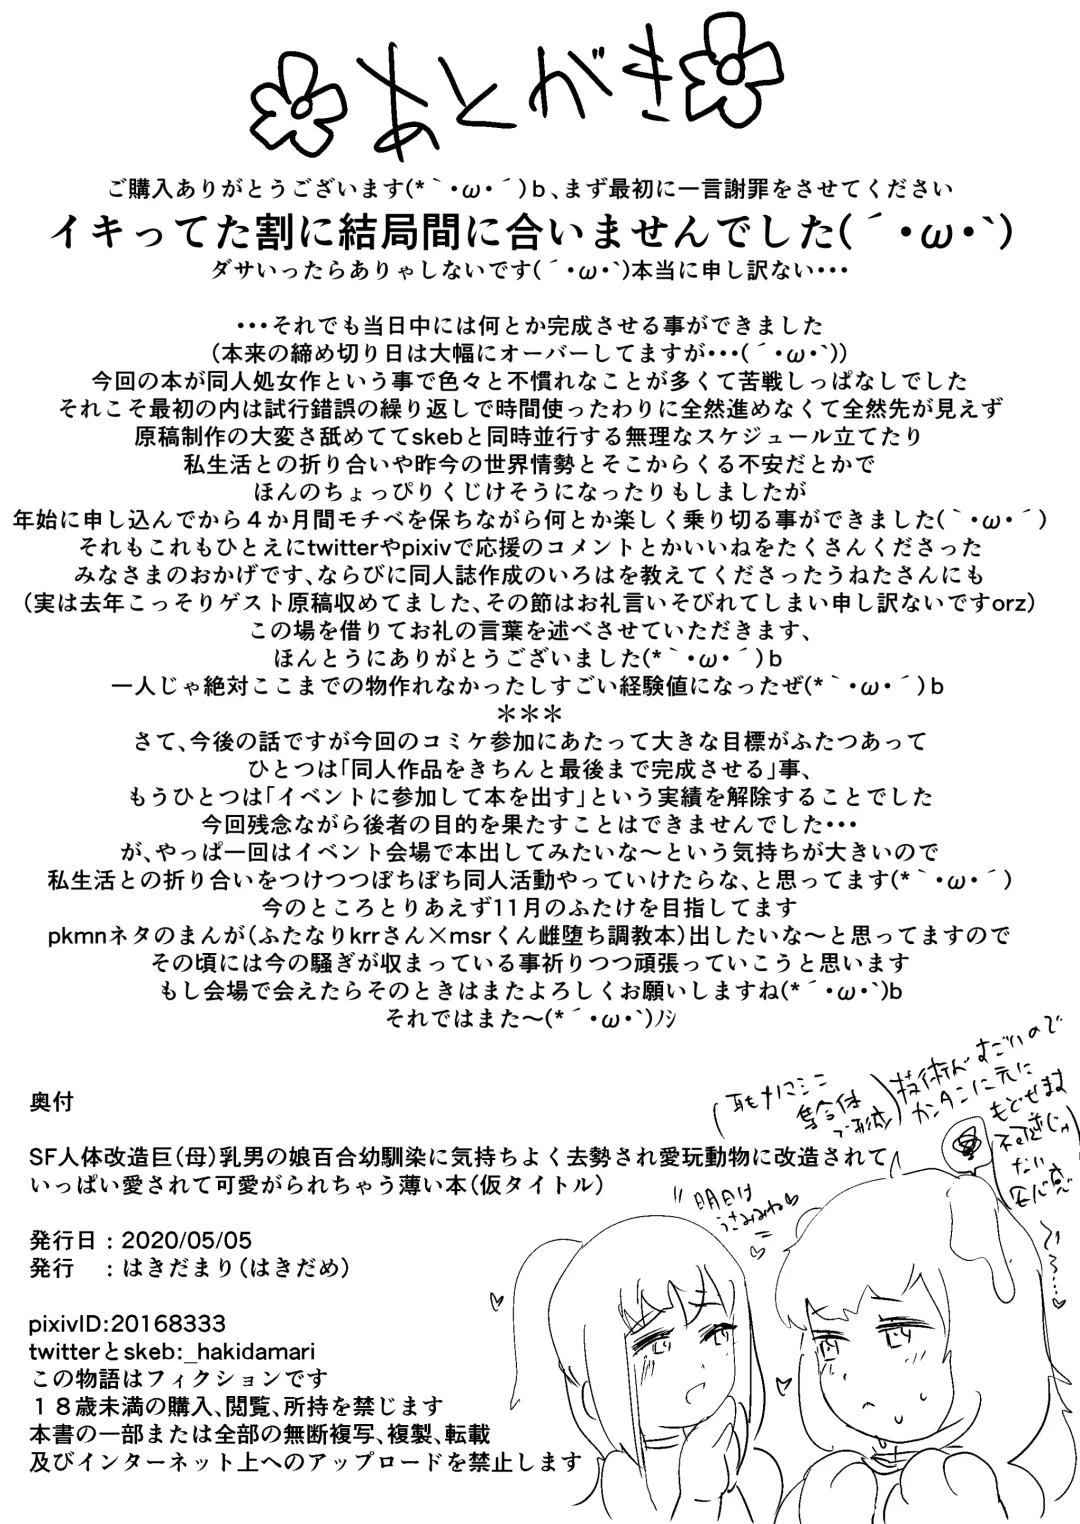 あとがき
ご購入ありがとうございます(*｀・ω・´)ｂ、まず最初に一言謝罪をさせてください
イキってた割に結局間に合いませんでした(´・ω・`)
ダサいったらありゃしないです(´・ω・`)本当に申し訳ない・・・
・・・それでも当日中には何とか完成させる事ができました
(本来の締め切り日は大幅にオーバーしてますが・・・(´・ω・`))
今回の本が同人処女作という事で色々と不慣れなことが多くて苦戦しっぱなしでした
それこそ最初の内は試行錯誤の繰り返しで時間使ったわりに全然進めなくて全然先が見えず
原稿制作の大変さ舐めててskebと同時並行する無理なスケジュール立てたり
私生活との折り合いや昨今の世界情勢とそこからくる不安だとかで
ほんのちょっぴりくじけそうになったりもしましたが
年始に申し込んでから４か月間モチベを保ちながら何とか楽しく乗り切る事ができました(｀・ω・´)
それもこれもひとえにtwitterやpixivで応援のコメントとかいいねをたくさんくださった
みなさまのおかげです、ならびに同人誌作成のいろはを教えてくださったうねたさんにも
(実は去年こっそりゲスト原稿収めてました、その節はお礼言いそびれてしまい申し訳ないですorz)
この場を借りてお礼の言葉を述べさせていただきます、
ほんとうにありがとうございました(*｀・ω・´)ｂ
一人じゃ絶対ここまでの物作れなかったしすごい経験値になったぜ(*｀・ω・´)ｂ
＊＊＊
さて、今後の話ですが今回のコミケ参加にあたって大きな目標がふたつあって
ひとつは「同人作品をきちんと最後まで完成させる」事、
もうひとつは「イベントに参加して本を出す」という実績を解除することでした
今回残念ながら後者の目的を果たすことはできませんでした・・・
が、やっぱ一回はイベント会場で本出してみたいな～という気持ちが大きいので
私生活との折り合いをつけつつぼちぼち同人活動やっていけたらな、と思ってます(*｀・ω・´)
今のところとりあえず11月のふたけを目指してます
pkmnネタのまんが(ふたなりkrrさん×msrくん雌堕ち調教本)出したいな～と思ってますので
その頃には今の騒ぎが収まっている事祈りつつ頑張っていこうと思います
もし会場で会えたらそのときはまたよろしくお願いしますね(*´・ω・`)b
それではまた～(*´・ω・`)ﾉｼ
技術がすごいので
カンタンに元に
もどせます
ない
安心感
明日は
うさみみね♡
奥付
SF人体改造巨(母)乳男の娘百合幼馴染に気持ちよく去勢され愛玩動物に改造されて
いっぱい愛されて可愛がられちゃう薄い本(仮タイトル)
発行日：2020/05/05
発行　：はきだまり(はきだめ)
pixivID:20168333
twitterとskeb:_hakidamari
この物語はフィクションです
１８歳未満の購入、閲覧、所持を禁じます
本書の一部または全部の無断複写、複製、転載
及びインターネット上へのアップロードを禁止します